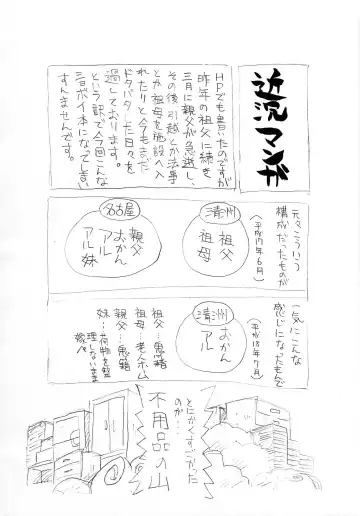 近況マンガ
HPでも書いたのですが
昨年の祖父に続き
三月に親父が急逝し、
その後引越とか法事
とか祖母を施設へ入
れたりと今もまだ
ドタバタした日々を
過しております。
という訳で今回こんな
ショボイ本になって
すんませんです。
元々こういう
構成だったものが
(平成17年6月)
清州
祖父
祖母
名古屋
親父
おかん
アル
アル妹
一気にこんな
感じになったもんで
(平成18年7月)
清州
おかん
アル
親父…鬼籍
祖父…鬼籍
祖母…老人ホーム
妹…荷物を整
理しないまま
嫁へ
とにかくすごかった
のが…
不用品の山